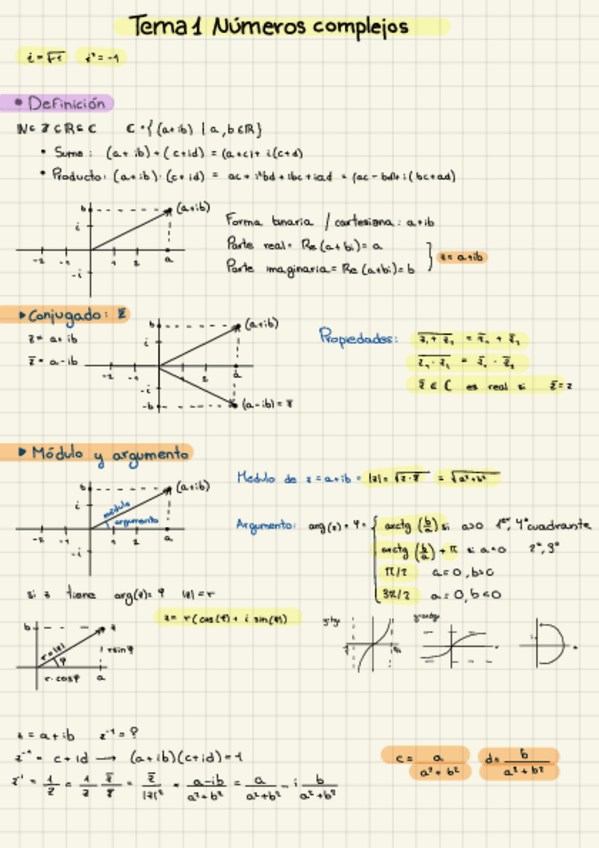 Tema 1 Números complejos
i = √-1   i² = -1
• Definición
N ⊂ Z ⊂ R ⊂ C   C = {(a+ib) | a,b ∈ R}
• Suma: (a+ib) + (c+id) = (a+c) + i(c+d)
• Producto: (a+ib)·(c+id) = ac + i²bd + ibc + iad = (ac - bd) + i(bc+ad)
b (a+ib)
i
-2 -1 1 2 a
-i
Forma binaria / cartesiana: a+ib
Parte real = Re(a+bi) = a
Parte imaginaria = Re(a+bi) = b
z = a+ib
▸ Conjugado: z̄
z = a+ib
z̄ = a-ib
b (a+ib)
i
1 2 a
-i
-b (a-ib) = z̄
Propiedades:
z̄ ∈ C es real si z̄ = z
▸ Módulo y argumento
b (a+ib)
i
módulo
argumento
-2 -1 1 2 a
-i
Modulo de z = a+ib = |z| = √z·z̄ = √a²+b²
Argumento: arg(z) = φ =
arctg (b/a) si a>0 1er, 4º cuadrante
arctg (b/a) + π si a<0 2º, 3º
π/2 a=0, b>0
3π/2 a=0, b<0
si z tiene arg(z) = φ |z| = r
z = r(cos(φ) + i sin(φ))
b z
r=|z|
φ
r sinφ
r·cosφ a
z = a+ib   z⁻¹ = ?
z⁻¹ = c+id → (a+ib)(c+id) = 1
z⁻¹ = 1/z = 1/z z̄/z̄ = z̄/|z|² = a-ib/a²+b² = a/a²+b² - i b/a²+b²
c = a/a²+b²   d = b/a²+b²